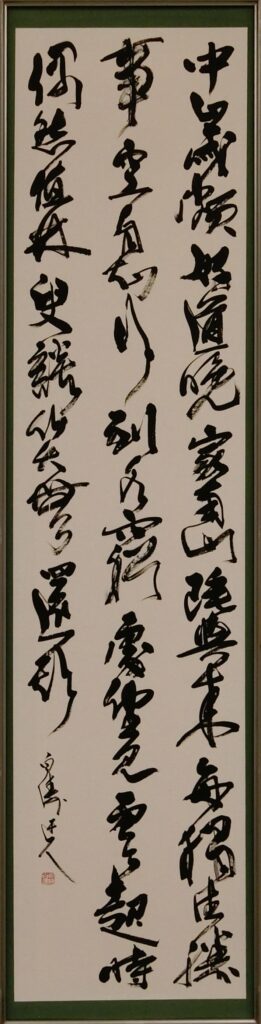 中歳頗好道晩家南山陲興来毎獨往勝
事空自知行到水窮處坐見雲起時
偶然値林叟談笑無還期